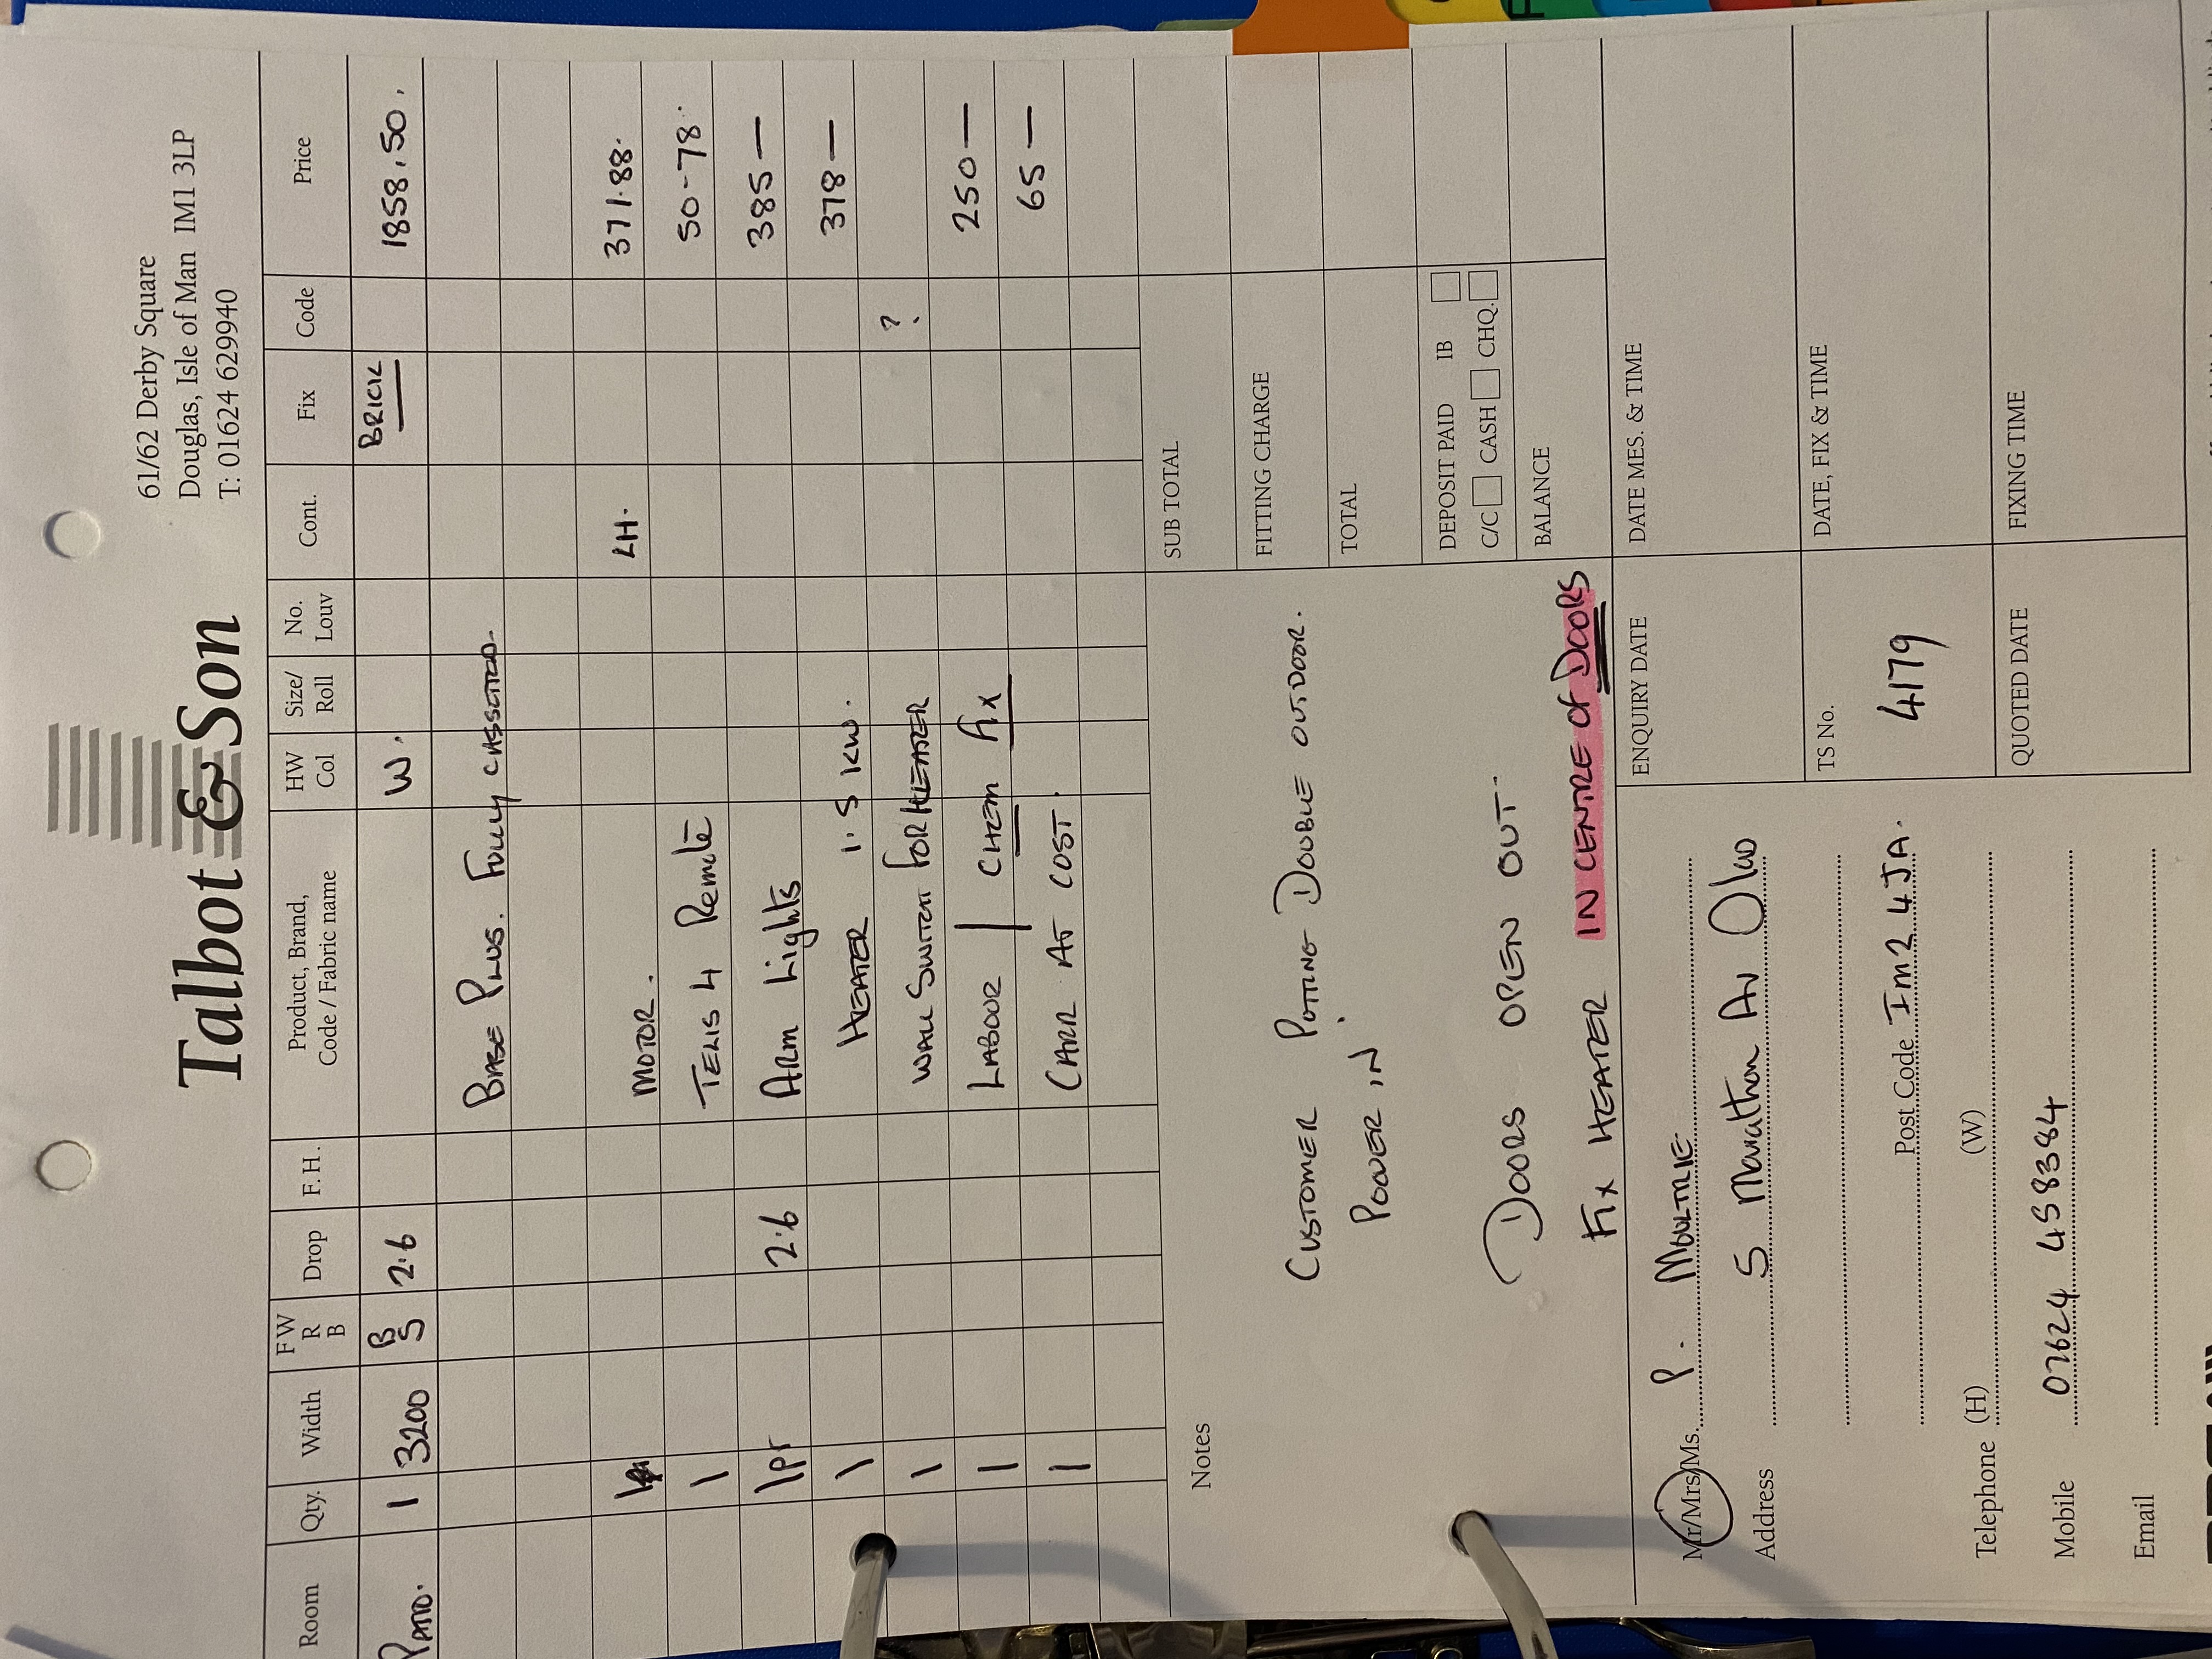 Talbot & Son
61/62 Derby Square
Douglas, Isle of Man IM1 3LP
T: 01624 629940
Room Qty. Width FW R B Drop F.H. Product, Brand, Code / Fabric name HW Col Size/ Roll No. Louv Cont. Fix Code Price
PATIO. 1 3200 B S 2.6 W. BRICK 1858.50.
BASE PLUS. FULLY CASSETTED.
1 MOTOR. LH. 371.88.
1 TELIS 4 Remote 50-78.
1pr 2.6 ARM Lights 385 —
1 HEATER 1.5 KW. 378 —
1 WALL SWITCH FOR HEATER ?
1 LABOUR | CHEM Fix 250 —
1 CARR AT COST. 65 —
Notes
CUSTOMER PUTTING DOUBLE OUTDOOR.
POWER IN
DOORS OPEN OUT.
Fix HEATER IN CENTRE of DOORS
SUB TOTAL
FITTING CHARGE
TOTAL
DEPOSIT PAID IB
C/C CASH CHQ.
BALANCE
Mr/Mrs/Ms. P. MOULTRIE
Address 5 Marathon Av
Post Code Im2 4JA.
Telephone (H) (W)
Mobile 07624 458384
Email
ENQUIRY DATE
DATE MES. & TIME
TS No.
4179
DATE, FIX & TIME
QUOTED DATE
FIXING TIME